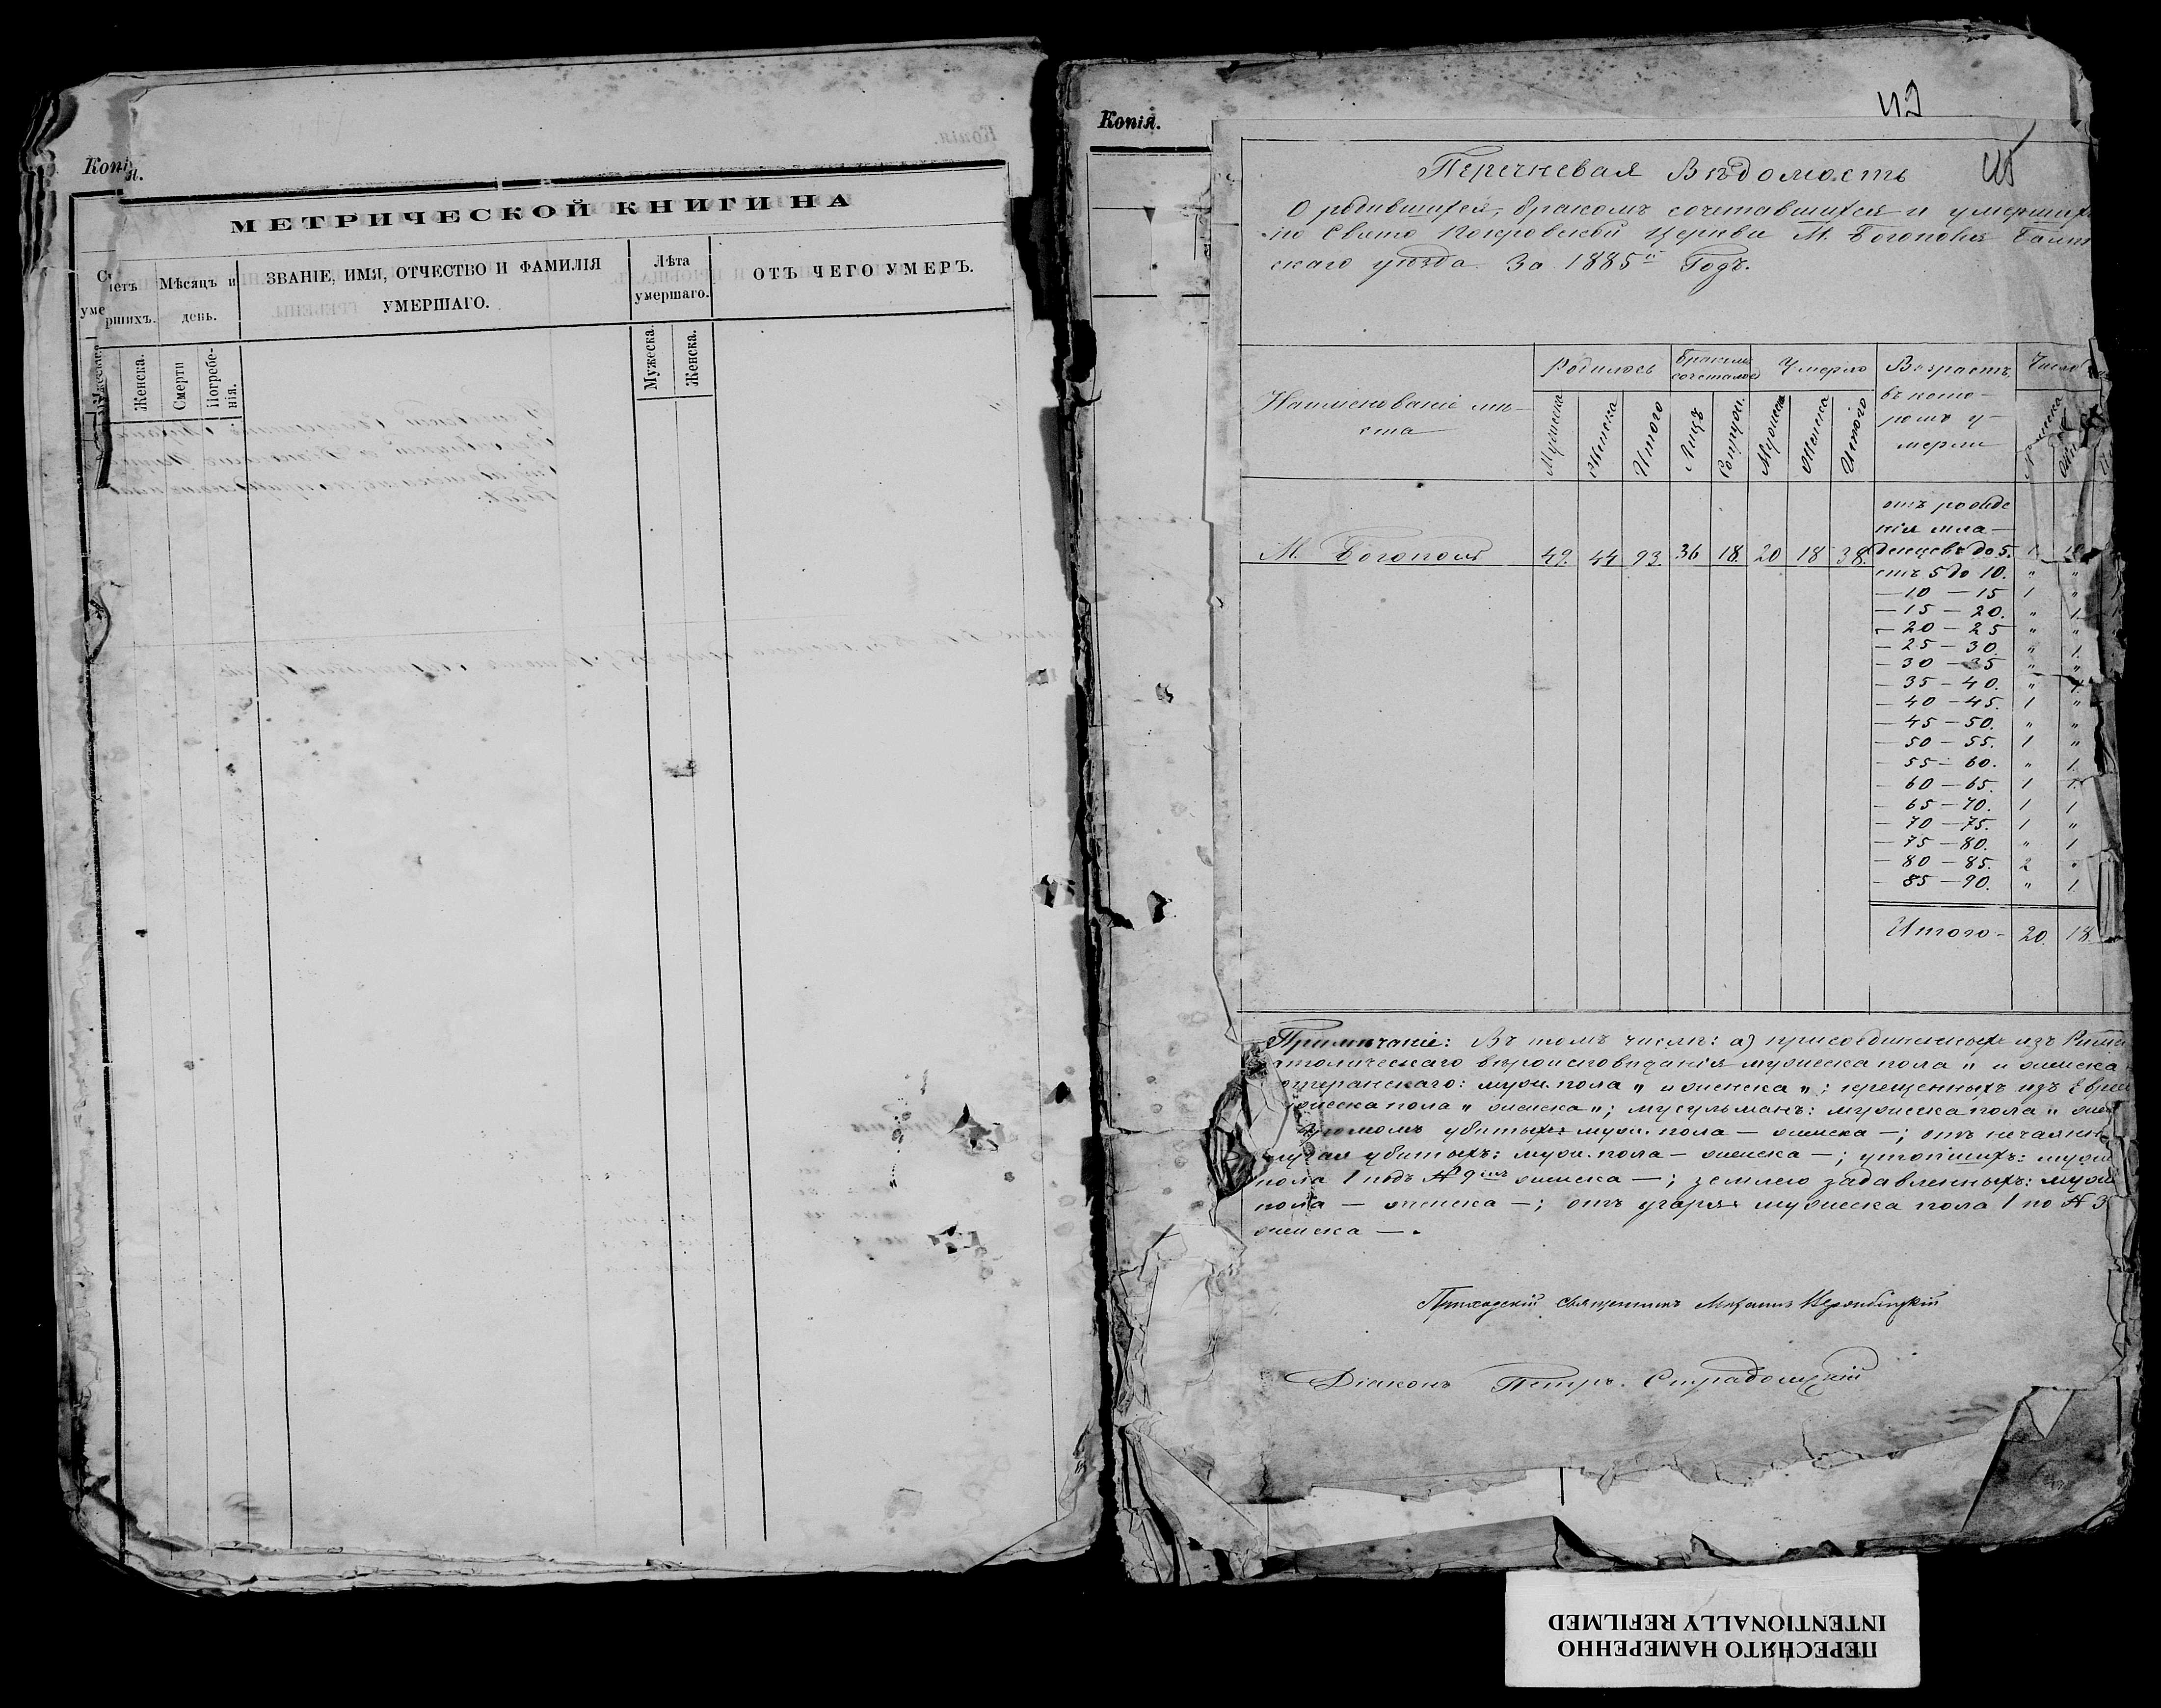 Копія.
МЕТРИЧЕСКОЙ КНИГИ НА
Счетъ умершихъ.
Мѣсяцъ и день.
ЗВАНІЕ, ИМЯ, ОТЧЕСТВО И ФАМИЛІЯ УМЕРШАГО.
Лѣта умершаго.
ОТЪ ЧЕГО УМЕРЪ.
Мужеска.
Женска.
Смерти
Погребенія.
Мужеска.
Женска.
Копія.
42
45
Перечневая Вѣдомость
О родившихся, бракомъ сочетавшихся и умершихъ
по Свято Покровской Церкви М. Богополя Балт
скаго уѣзда За 1885й Годъ.
Наименованіе мѣста
Родилось
Бракомъ сочеталось
Умерло
Возрастъ, въ которомъ умерли
Число
Мужеска
Женска
Итого
Лицъ
Супруж.
Мужеска
Женска
Итого
М. Богополь 49. 44 93. 36 18. 20 18 38.
отъ рожде
нія мла—
денцевъ до 5.
отъ 5 до 10. " "
— 10 — 15 1 "
— 15 — 20. " 1.
— 20 — 25 " "
— 25 — 30. " 1.
— 30 — 35 " "
— 35 — 40. " 1.
— 40 — 45. 1 "
— 45 — 50. " "
— 50 — 55. 1 "
— 55 — 60. " 1.
— 60 — 65. 1 1.
— 65 — 70. 1 1
— 70 — 75. 1 "
— 75 — 80. " 1
— 80 — 85. 2
— 85 — 90. " 1.
Итого — 20. 18.
Примѣчаніе: Въ томъ числѣ: а) присоединенныхъ изъ Римо
католическаго вѣроисповѣданія мужеска пола " и женска
лютеранскаго: муж. пола " и женска "; крещенныхъ изъ Евре
мужеска пола " женска "; мусульманъ: мужеска пола " жен
громомъ убитыхъ муж. пола — женска —; отъ нечаянн
случая убитыхъ: муж. пола — женска —; утопшихъ: муж
пола 1 подъ № 9мъ женска —; землею задавленныхъ: муж
пола — женска —; отъ угара мужеска пола 1 по № 3
женска —.
Приходскій священникъ
Діаконъ Петръ Страдомскій
ПЕРЕСНЯТО НАМЕРЕННО
INTENTIONALLY REFILMED